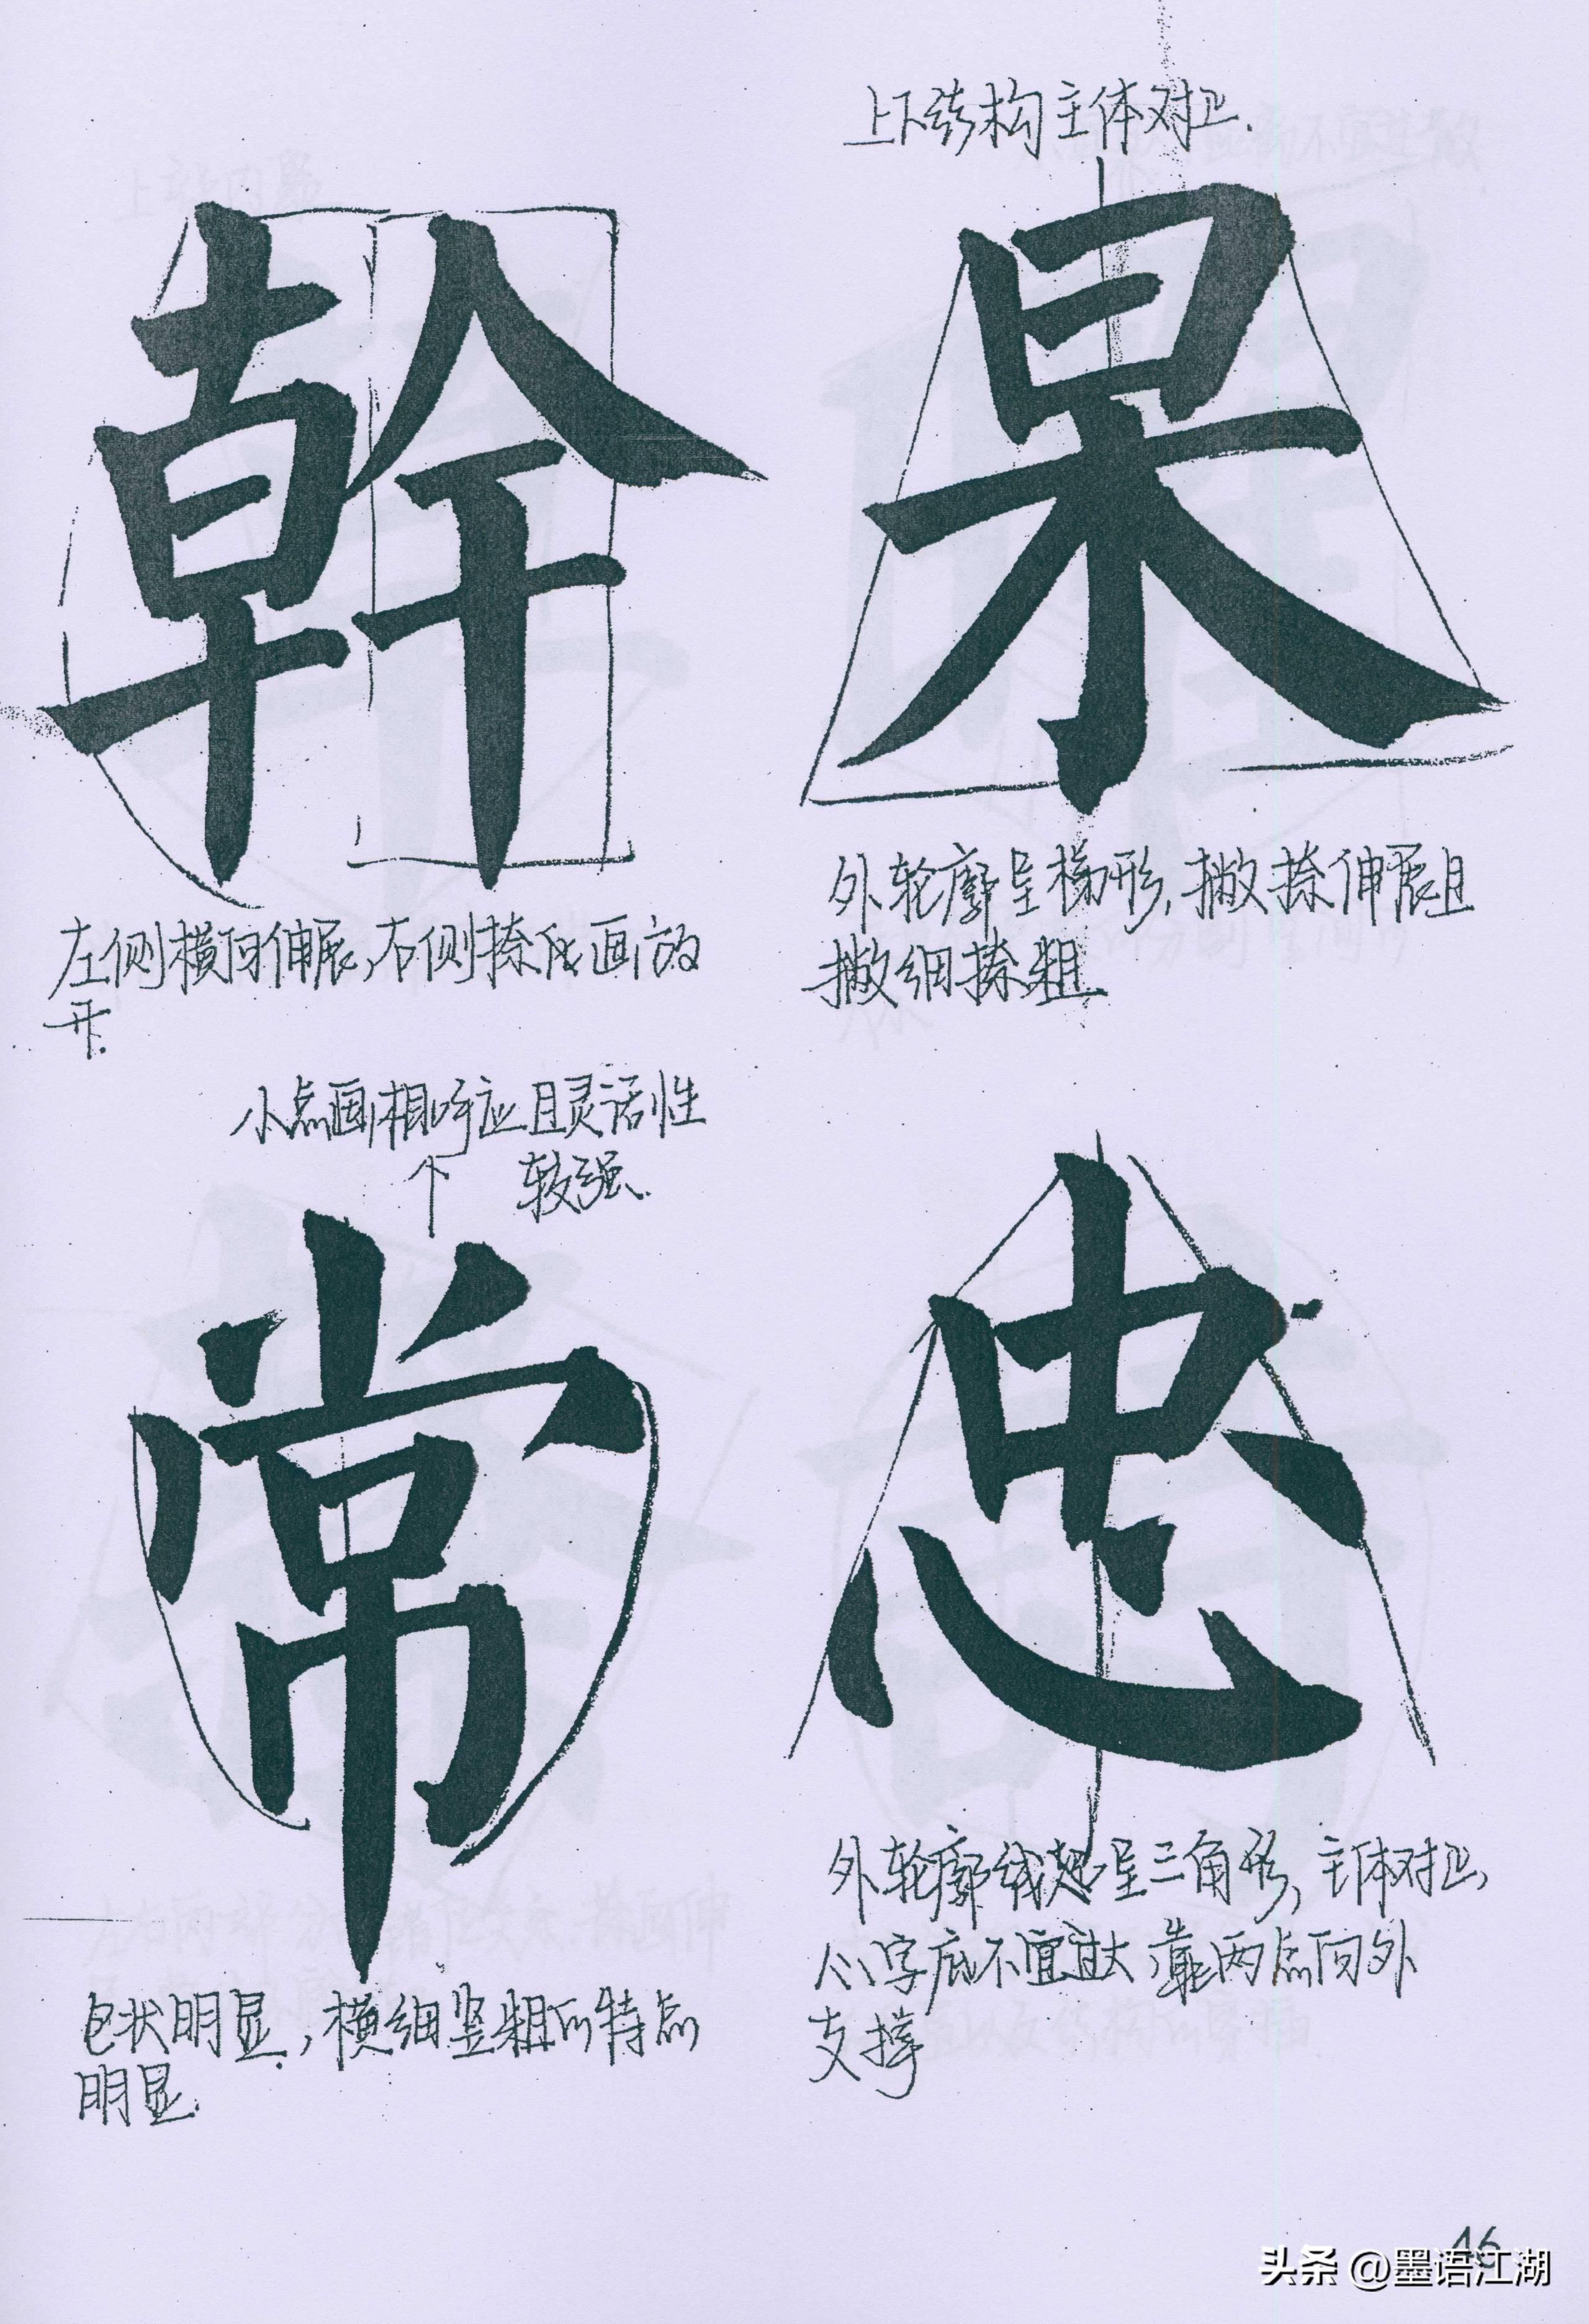 上下结构主体对正.
幹
果
左侧横向伸展,右侧捺化画放
开.
外轮廓呈梯形,撇捺伸展且
撇细捺粗
小点画相呼应且灵活性
较强.
常
忠
包状明显,横细竖粗的特点
明显.
外轮廓线起呈三角形,主体对正,
心字底不宜过大,靠两点向外
支撑
46
头条 @墨语江湖